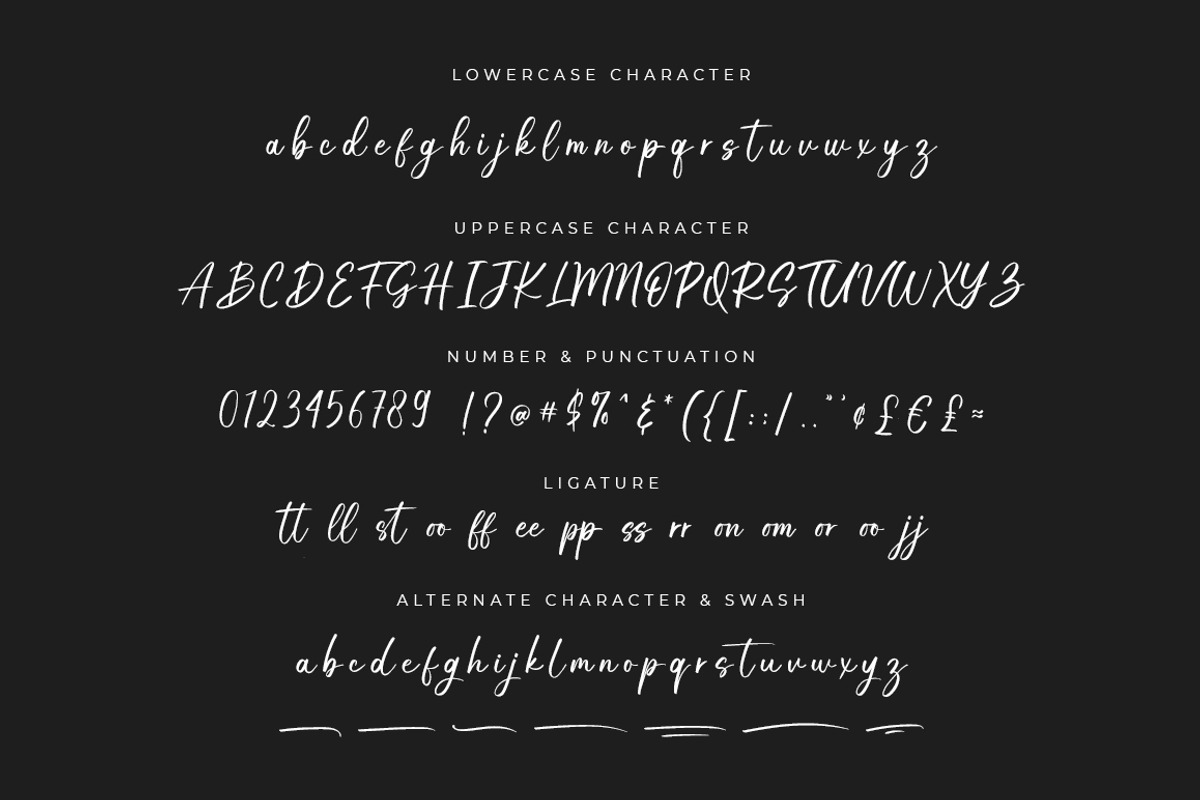 LOWERCASE CHARACTER
a b c d e f g h i j k l m n o p q r s t u v w x y z
UPPERCASE CHARACTER
A B C D E F G H I J K L M N O P Q R S T U V W X Y Z
NUMBER & PUNCTUATION
0 1 2 3 4 5 6 7 8 9 ! ? @ # $ % ^ & * ( { [ : ; / . . " ' ¢ £ € £ ≈
LIGATURE
tt ll st oo ff ee pp ss rr on om or oo jj
ALTERNATE CHARACTER & SWASH
a b c d e f g h i j k l m n o p q r s t u v w x y z